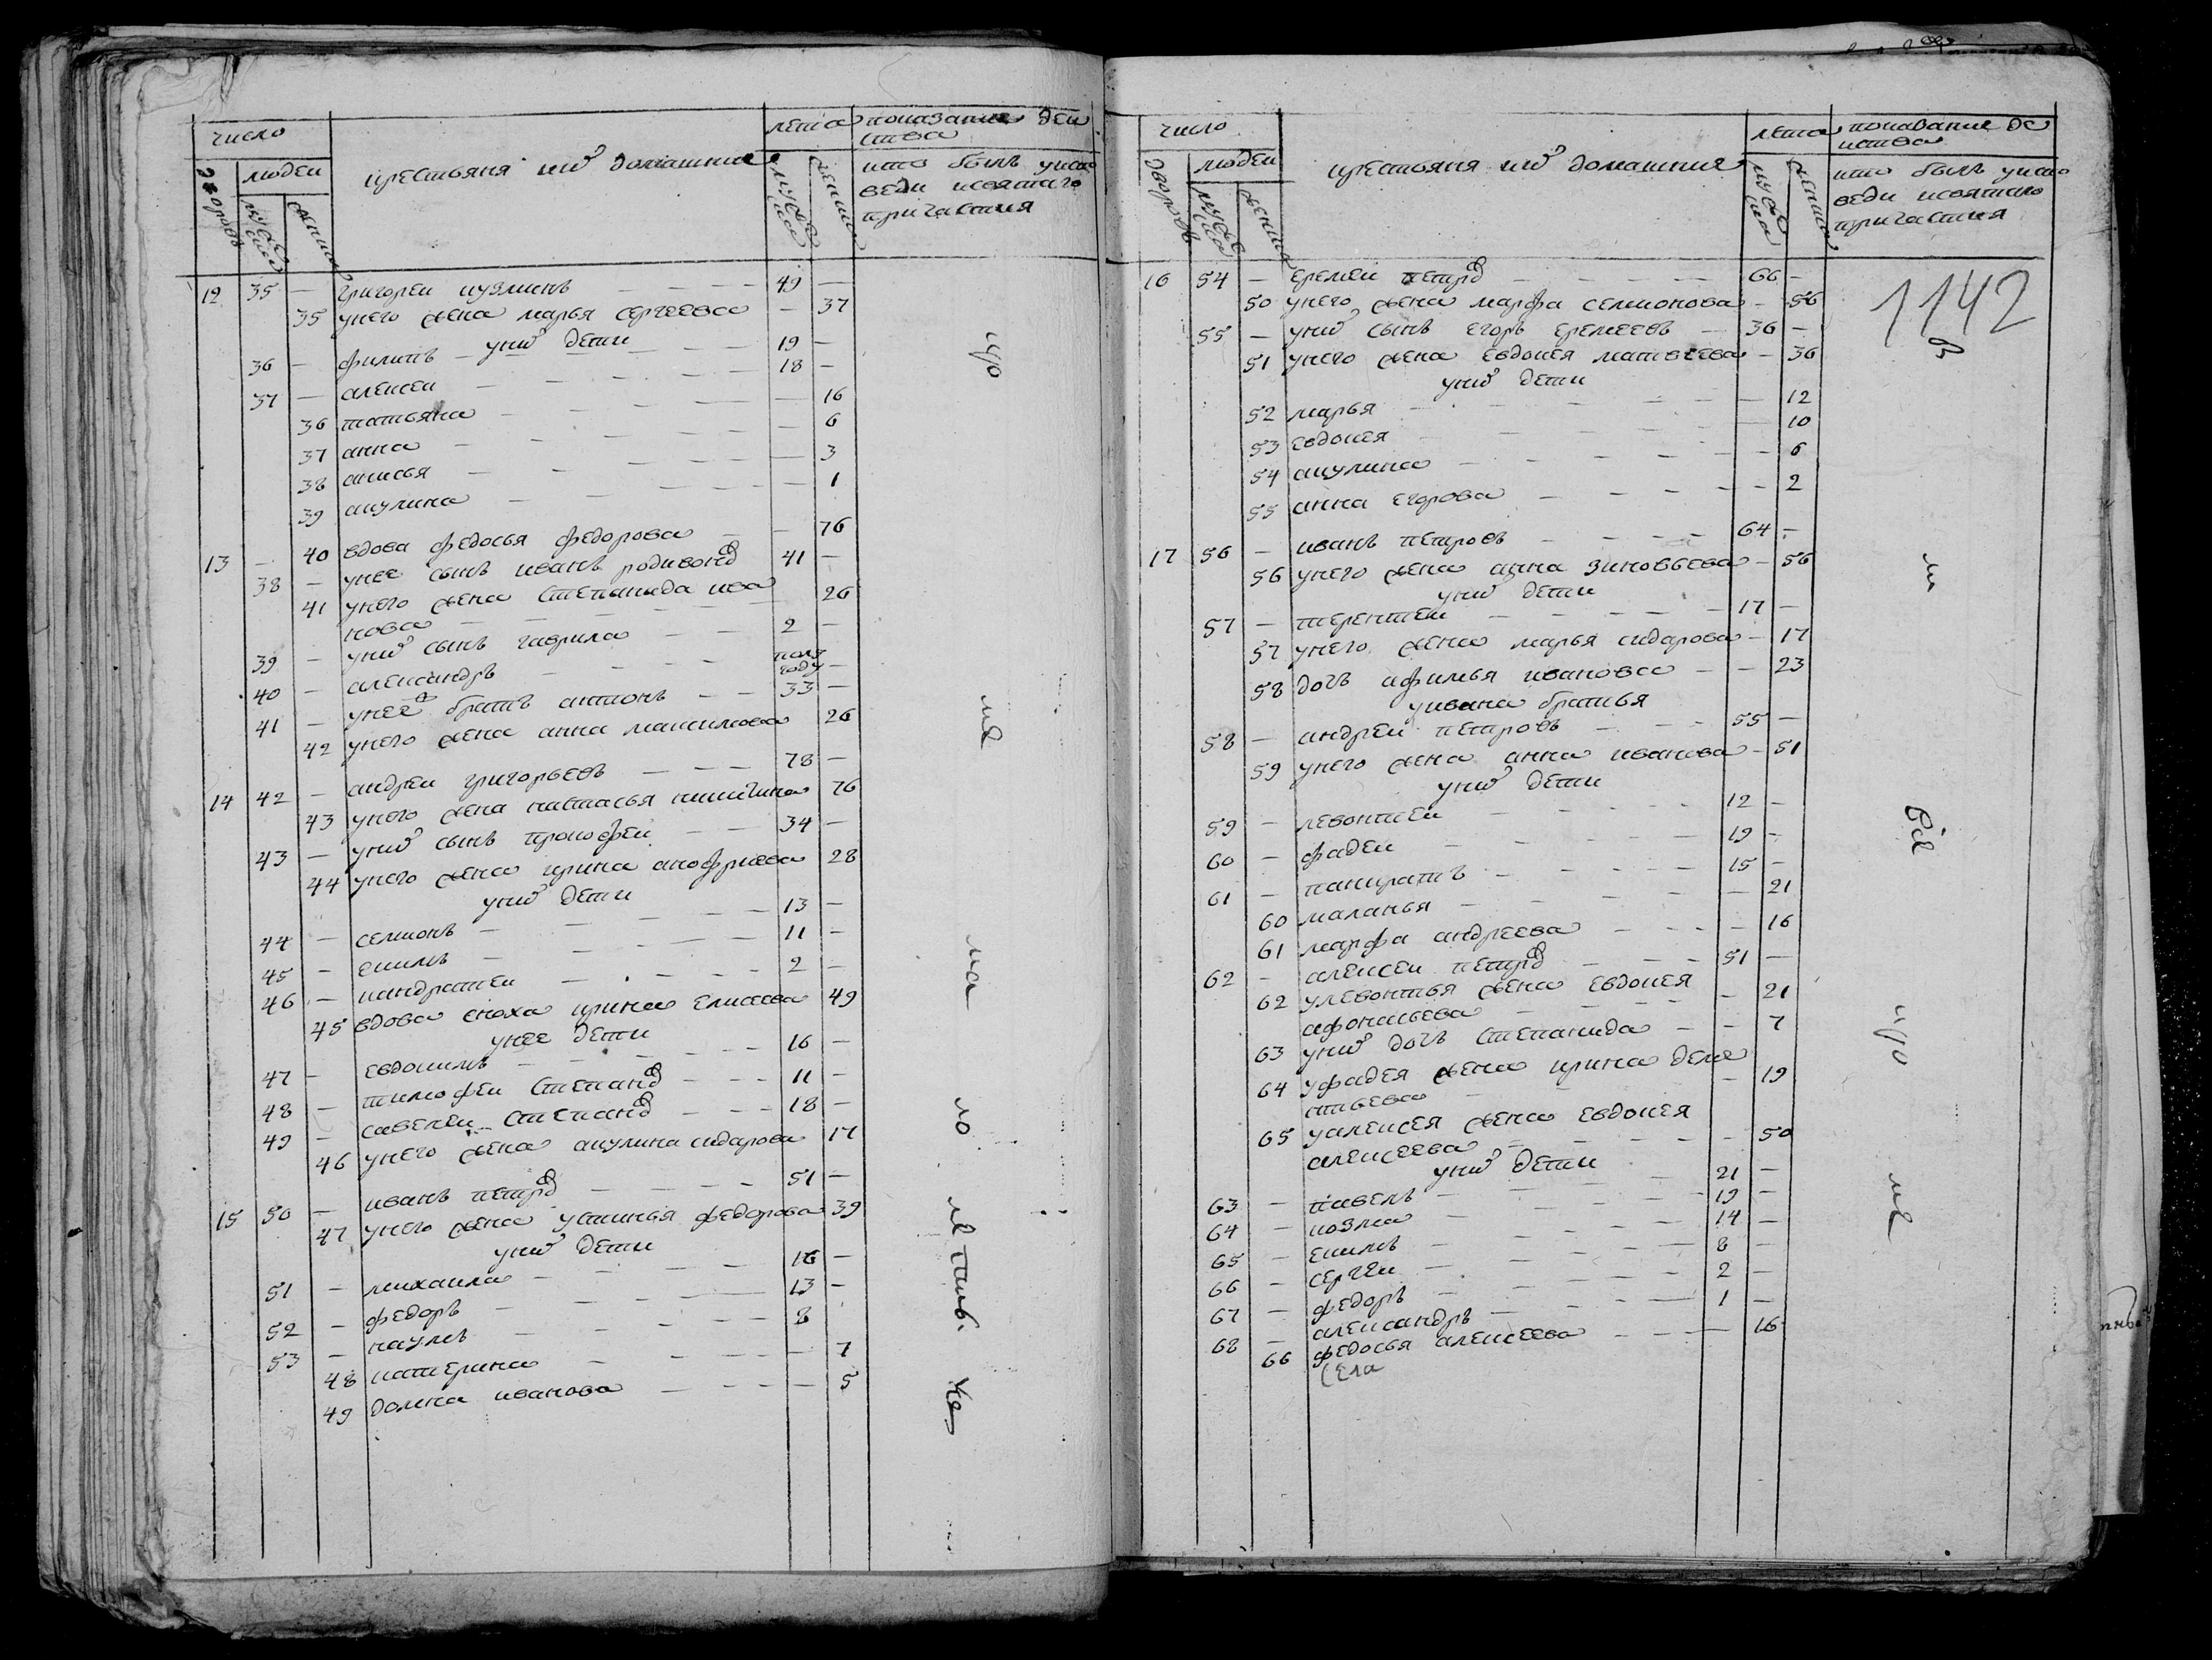 число
дворовъ
людей
мужеска
женска
крестьяня ихъ домашние
лета
мужеска
женска
показание деи
ства
кто былъ уиспо
веди исвятаго
причастия
12 35 — григореи кузминъ — 49 —
35 унего жена марья сергеева — 37
унихъ дети
36 — филипъ — 19 —
37 — алексеи — 18 —
36 татьяна — 16
37 анна — 6
38 анисья — 3
39 акулина — 1
13 — 40 вдова федосья федорова — 76
38 — унее сынъ иванъ родивоновъ 41 —
41 унего жена степанида ива
нова — 26
39 — унихъ сынъ гаврила — 2 —
40 — александръ — полу
году —
41 — унее братъ антонъ — 33 —
42 унего жена анна максимова 26
14 42 — андреи григорьевъ — 78 —
43 унего жена настасья никитина 76
43 — унихъ сынъ прокофеи — 34 —
44 унего жена ирина анофриева 28
унихъ дети
44 — семионъ — 13 —
45 — екимъ — 11 —
46 — кандратеи — 2 —
45 вдова сноха ирина елисеева 49
унее дети
47 — евдокимъ — 16 —
48 — тимофеи степановъ — 11 —
49 — савелеи степановъ — 18 —
46 унего жена акулина сидарова 17
15 50 — иванъ петровъ — 51 —
47 унего жена устинья федорова 39
унихъ дети
51 — михаила — 16 —
52 — федоръ — 13 —
53 — наумъ — 8
48 катерина — 7
49 домна иванова — 5
кро
ме
ма
ло
летст.
число
дворовъ
людеи
мужеска
женска
крестьяня ихъ домашние
лета
мужеска
женска
показание де
иства
кто былъ уиспо
веди исвятаго
причастия
1142
16 54 — еремеи петровъ — 66 —
50 унего жена марфа семионова — 56
55 — унихъ сынъ егоръ еремеевъ — 36 —
51 унего жена евдокея матвеева — 36
унихъ дети
52 марья — 12
53 евдокея — 10
54 акулина — 6
55 анна егорова — 2
17 56 — иванъ петровъ — 64 —
56 унего жена анна зиновьева — 56
унихъ дети
57 — терентеи — 17 —
57 унего жена марья сидарова — 17
58 дочь афимья иванова — 23
уивана братья
58 — андреи петровъ — 55 —
59 унего жена анна иванова — 51
унихъ дети
59 — левонтеи — 12 —
60 — фадеи — 19 —
61 — панкратъ — 15 —
60 маланья — 21
61 марфа андреева — 16
62 — алексеи петровъ — 51 —
62 улевонтья жена евдокея
афонасьева — 21
63 унихъ дочь степанида — 7
64 уфадея жена ирина деме
нтьева — 19
65 уалексея жена евдокея
алексеева — 50
унихъ дети
63 — павелъ — 21 —
64 — козма — 19 —
65 — екимъ — 14 —
66 — сергеи — 8 —
67 — федоръ — 2 —
68 — александръ — 1 —
66 федосья алексеева — 16
села
все
кро
ме